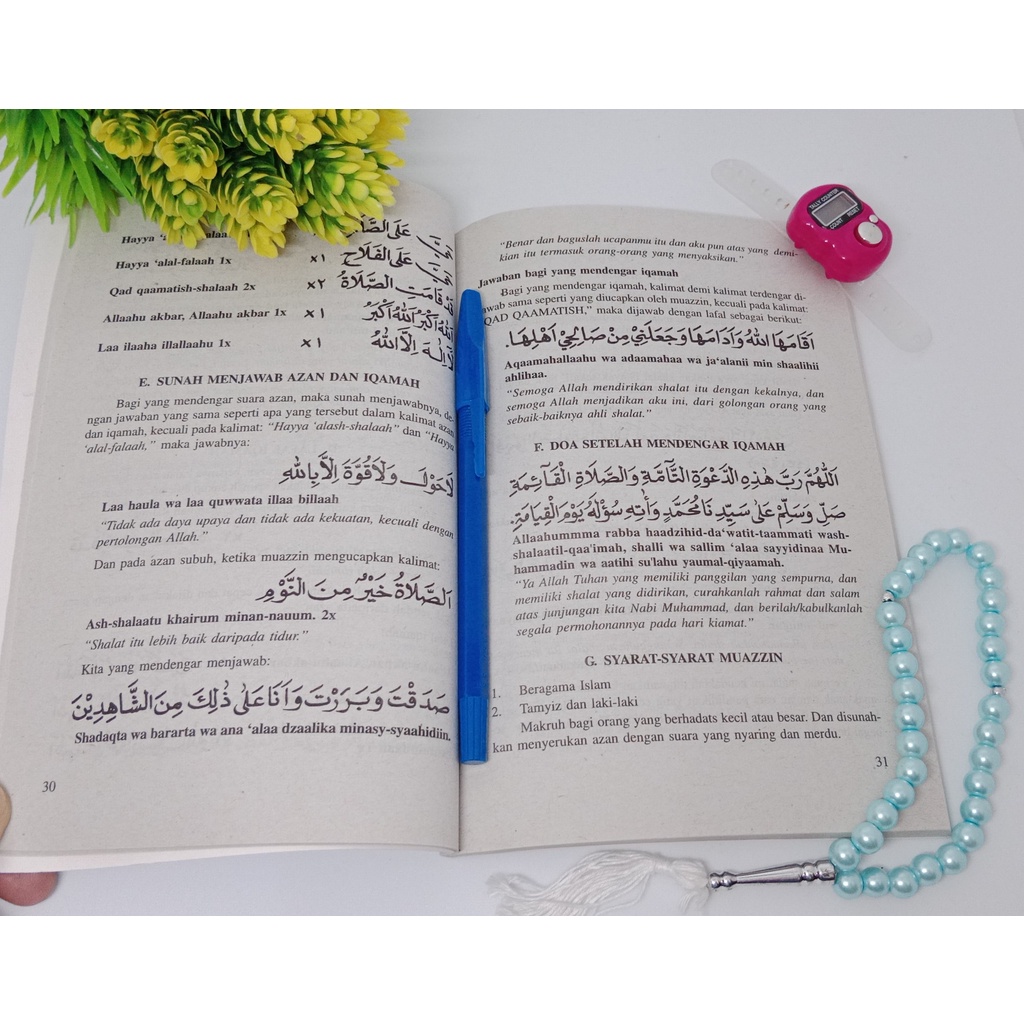 حَيَّ عَلَى
Hayya ‘alal-falaah 1x ×١ حَيَّ عَلَى الْفَلَاحِ
Qad qaamatish-shalaah 2x ×٢ قَدْ قَامَتِ الصَّلَاةُ
Allaahu akbar, Allaahu akbar 1x ×١ اَللّٰهُ اَكْبَرُ اَللّٰهُ اَكْبَرُ
Laa ilaaha illallaahu 1x ×١ لَا اِلٰهَ اِلَّا اللّٰهُ
E. SUNAH MENJAWAB AZAN DAN IQAMAH
Bagi yang mendengar suara azan, maka sunah menjawabnya, de-
ngan jawaban yang sama seperti apa yang tersebut dalam kalimat azan
dan iqamah, kecuali pada kalimat: “Hayya ‘alash-shalaah” dan “Hayya
‘alal-falaah,” maka jawabnya:
لَاحَوْلَ وَلَاقُوَّةَ اِلَّا بِاللّٰهِ
Laa haula wa laa quwwata illaa billaah
“Tidak ada daya upaya dan tidak ada kekuatan, kecuali dengan
pertolongan Allah.”
Dan pada azan subuh, ketika muazzin mengucapkan kalimat:
اَلصَّلَاةُ خَيْرٌ مِنَ النَّوْمِ
Ash-shalaatu khairum minan-nauum. 2x
“Shalat itu lebih baik daripada tidur.”
Kita yang mendengar menjawab:
صَدَقْتَ وَبَرَرْتَ وَاَنَا عَلٰى ذٰلِكَ مِنَ الشَّاهِدِيْنَ
Shadaqta wa bararta wa ana ‘alaa dzaalika minasy-syaahidiin.
30
“Benar dan baguslah ucapanmu itu dan aku pun atas yang demi-
kian itu termasuk orang-orang yang menyaksikan.”
Jawaban bagi yang mendengar iqamah
Bagi yang mendengar iqamah, kalimat demi kalimat terdengar di-
jawab sama seperti yang diucapkan oleh muazzin, kecuali pada kalimat:
“QAD QAAMATISH,” maka dijawab dengan lafal sebagai berikut:
اَقَامَهَا اللّٰهُ وَاَدَامَهَا وَجَعَلَنِيْ مِنْ صَالِحِيْ اَهْلِهَا.
Aqaamahallaahu wa adaamahaa wa ja‘alanii min shaalihii
ahlihaa.
“Semoga Allah mendirikan shalat itu dengan kekalnya, dan
semoga Allah menjadikan aku ini, dari golongan orang yang
sebaik-baiknya ahli shalat.”
F. DOA SETELAH MENDENGAR IQAMAH
اَللّٰهُمَّ رَبَّ هٰذِهِ الدَّعْوَةِ التَّامَّةِ وَالصَّلَاةِ الْقَآئِمَةِ
صَلِّ وَسَلِّمْ عَلٰى سَيِّدِنَا مُحَمَّدٍ وَاٰتِهِ سُؤْلَهُ يَوْمَ الْقِيَامَةِ.
Allaahummma rabba haadzihid-da‘watit-taammati wash-
shalaatil-qaa'imah, shalli wa sallim ‘alaa sayyidinaa Mu-
hammadin wa aatihi su'lahu yaumal-qiyaamah.
“Ya Allah Tuhan yang memiliki panggilan yang sempurna, dan
memiliki shalat yang didirikan, curahkanlah rahmat dan salam
atas junjungan kita Nabi Muhammad, dan berilah/kabulkanlah
segala permohonannya pada hari kiamat.”
G. SYARAT-SYARAT MUAZZIN
1. Beragama Islam
2. Tamyiz dan laki-laki
Makruh bagi orang yang berhadats kecil atau besar. Dan disunah-
kan menyerukan azan dengan suara yang nyaring dan merdu.
31
TALLY COUNTER
COUNT RESET